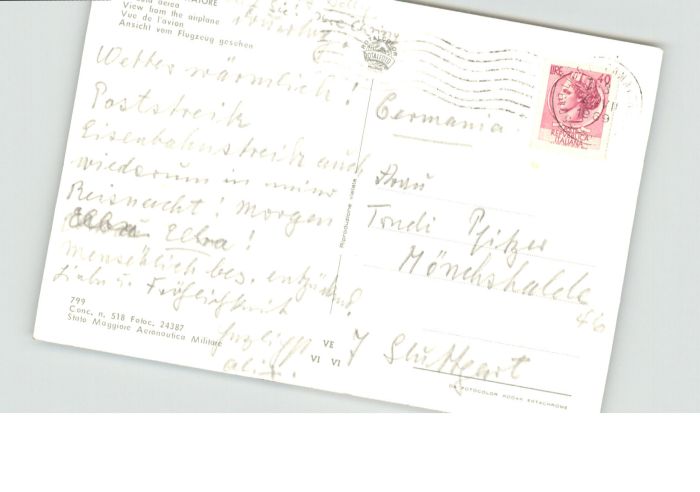 aerea
View from the airplane
Vue de l'avion
Ansicht vom Flugzeug gesehen
Wetter wärmlich!
Poststreik
Eisenbahnstreik auch
wiederum in meiner
Reisnacht! Morgen
Elba!
Menschlich bes. entzückend.
Liebe u. Fröhlichkeit
799
Conc. n. 518 Fotoc. 24387
Stato Maggiore Aeronautica Militare
VE
VI VI
Riproduzione vietata
LIRE 40
REPUBBLICA
ITALIANA
Germania
Frau
Trudi Pfitzer
Mönchshalde
7 Stuttgart
DA FOTOCOLOR KODAK EKTACHROME